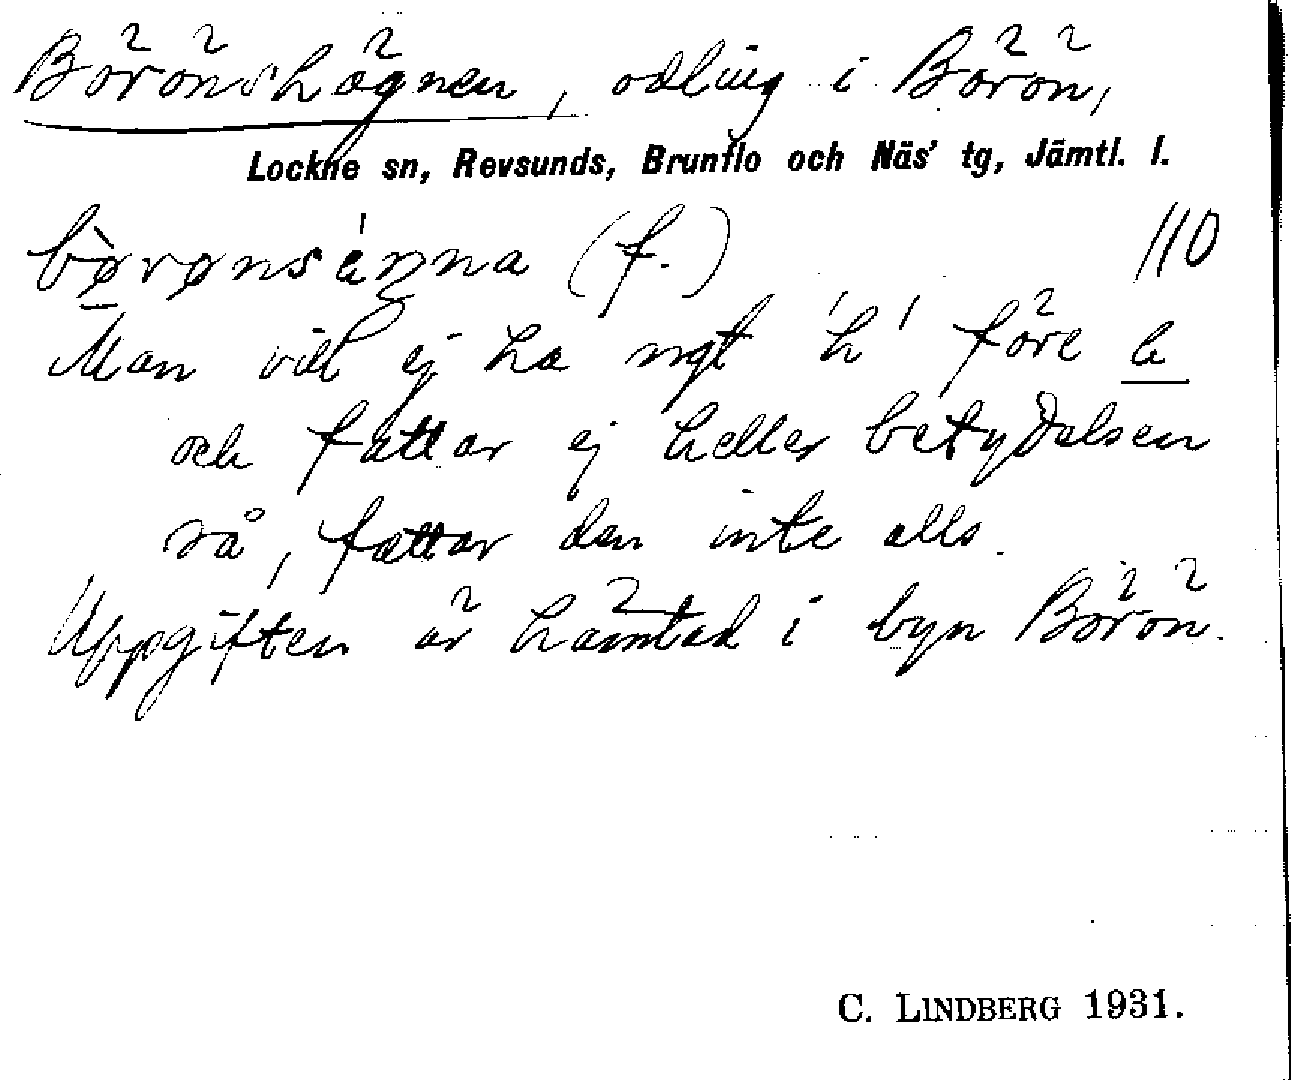 Böröns hägnen, odling i Börön,
Lockne sn, Revsunds, Brunflo och Näs' tg, Jämtl. l.
(f.) 110
Man vill ej ha ngt 'h' före
och fattar ej heller betydelsen
så, fattar den inte alls.
Uppgiften är hämtad i byn Börön.
C. LINDBERG 1931.